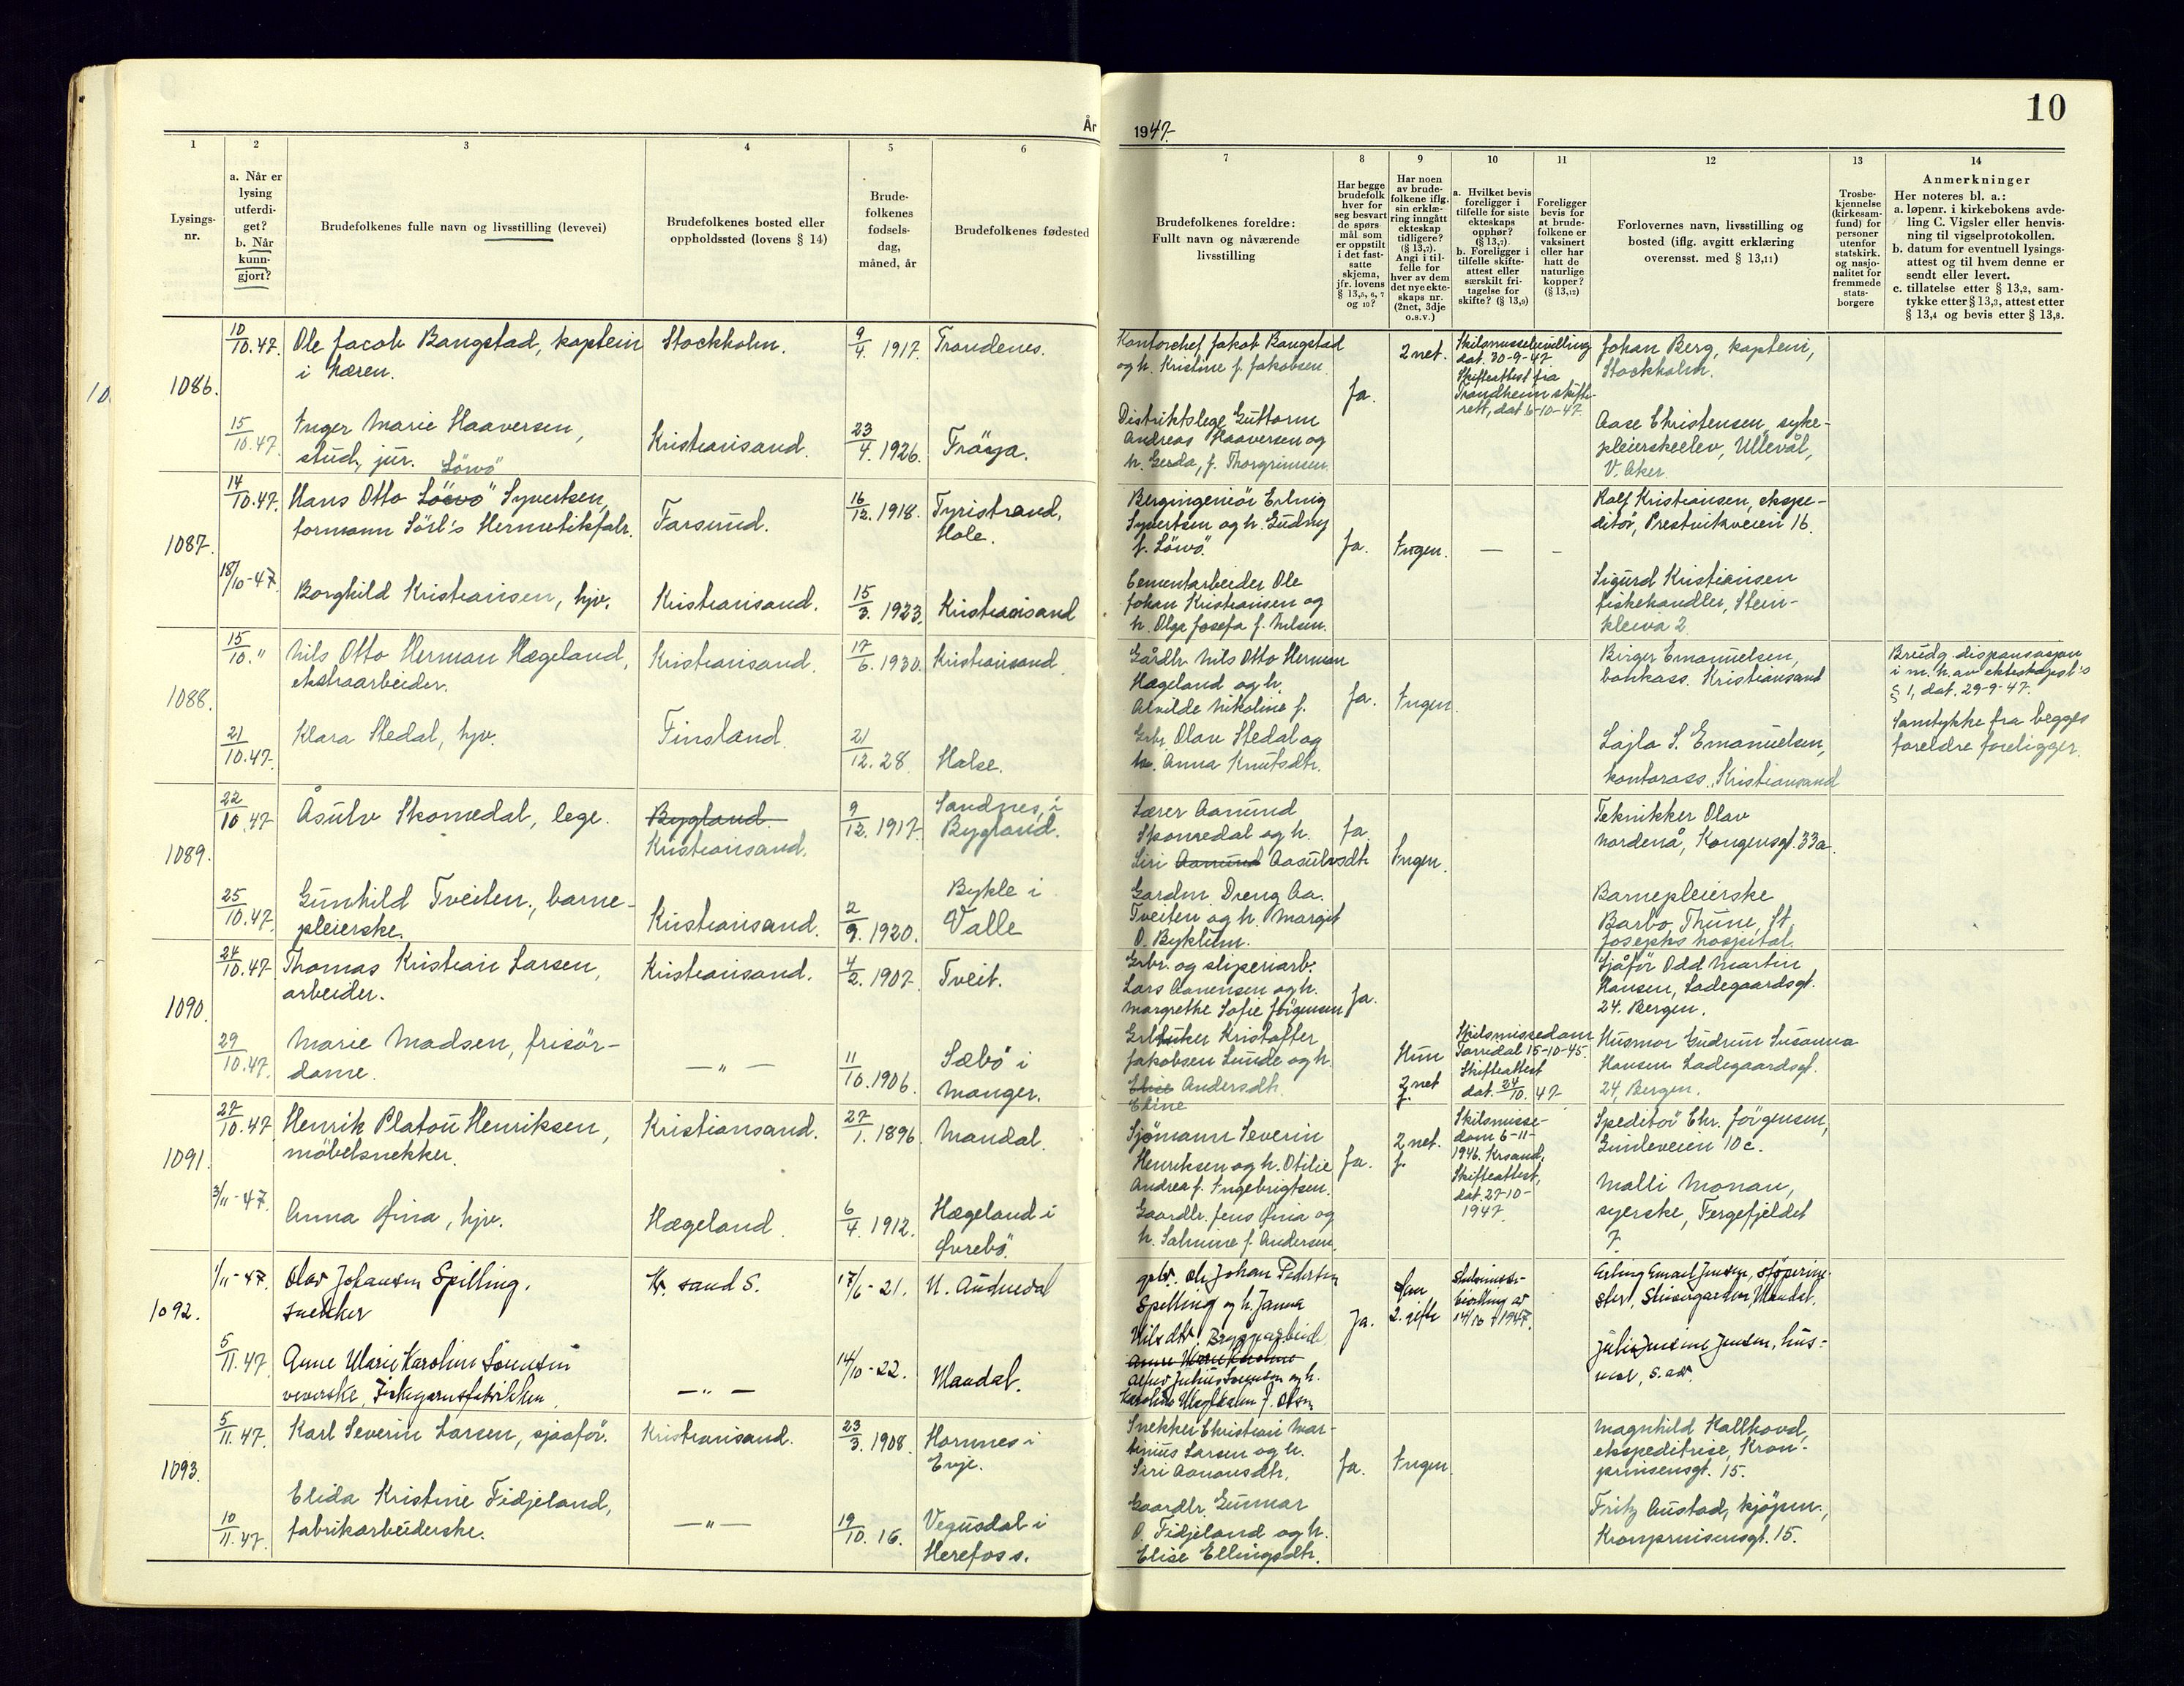 10
År 1947.
1
2
3
4
5
6
7
8
9
10
11
12
13
14
Lysings-
nr.
a. Når er
lysing
utferdi-
get?
b. Når
kunn-
gjort?
Brudefolkenes fulle navn og livsstilling (levevei)
Brudefolkenes bosted eller
oppholdssted (lovens § 14)
Brude-
folkenes
fødsels-
dag,
måned, år
Brudefolkenes fødested
Brudefolkenes foreldre:
Fullt navn og nåværende
livsstilling
Har begge
brudefolk
hver for
seg besvart
de spørs-
mål som
er oppstilt
i det fast-
satte
skjema,
jfr. lovens
§ 13,5, 6, 7
og 10?
Har noen
av brude-
folkene iflg.
sin erklæ-
ring inngått
ekteskap
tidligere?
(§ 13,7).
Angi i til-
felle for
hver av dem
det nye ekte-
skaps nr.
(2net, 3dje
o.s.v.)
a. Hvilket bevis
foreligger i
tilfelle for siste
ekteskaps
opphør?
(§ 13,7).
b. Foreligger i
tilfelle skifte-
attest eller
særskilt fri-
tagelse for
skifte? (§ 13,9)
Foreligger
bevis for
at brude-
folkene er
vaksinert
eller har
hatt de
naturlige
kopper?
(§ 13,12)
Forlovernes navn, livsstilling og
bosted (iflg. avgitt erklæring
overensst. med § 13,11)
Trosbe-
kjennelse
(kirkesam-
fund) for
personer
utenfor
statskirk.
og nasjo-
nalitet for
fremmede
stats-
borgere
Anmerkninger
Her noteres bl. a.:
a. løpenr. i kirkebokens avde-
ling C. Vigsler eller henvis-
ning til vigselprotokollen.
b. datum for eventuell lysings-
attest og til hvem denne er
sendt eller levert.
c. tillatelse etter § 13,2, sam-
tykke etter § 13,3, attest etter
§ 13,4 og bevis etter § 13,8.
1086.
10/10.47.
Ole Jacob Bangstad, kaptein
i hæren.
Stockholm.
9/4. 1917.
Trondenes.
Kontorchef Jakob Bangstad
og h. Kristine f. Jakobsen.
Ja.
2 net.
Skilsmissebevilling
dat. 30-9-47
Skifteattest fra
Trondheim skifte-
rett, dat 6-10-47.
Johan Berg, kaptein,
Stockholm.
15/10.47.
Inger Marie Haaversen,
stud. jur.
Kristiansand.
23/4. 1926.
Fröya.
Distriktslege Guttorm
Andreas Haaversen og
h. Gerda, f. Thorgrimsen.
Aase Christensen, syke-
pleierskeelev, Ullevål,
V. Aker.
1087.
14/10.47.
Löwö
Hans Otto Löwö Syvertsen,
formann Sörl's Hermetikfabr.
Farsund.
16/12. 1918.
Tyristrand,
Hole.
Bergingeniör Erling
Syvertsen og h. Gudny
f. Löwö.
Ja.
Ingen.
—
—
Rolf Kristiansen, ekspe-
ditör, Prestvikveien 16.
18/10-47.
Borghild Kristiansen, hjv.
Kristiansand.
15/3. 1923.
Kristiansand
Cementarbeider Ole
Johan Kristiansen og
h. Olga Josefa f. Nilsen.
Sigurd Kristiansen
fiskehandler, Stein-
kleiva 2.
1088.
15/10. "
Nils Otto Herman Hægeland,
ekstraarbeider.
Kristiansand.
17/6. 1930.
Kristiansand
Gårdbr. Nils Otto Herman
Hægeland og h.
Alvilde Nikoline f.
Ja.
Ingen.
Birger Emanuelsen,
bankass. Kristiansand
Brudg. dispensasjon
i m. h. av ekteskapsl's
§ 1, dat. 29-9-47.
21/10.47.
Klara Stedal, hjv.
Finsland.
21/12. 28.
Halse.
Grbr. Olav Stedal og
h. Anna Knutsdtr.
Lajla S. Emanuelsen,
kontorass. Kristiansand
Samtykke fra begges
foreldre foreligger.
1089.
22/10.47
Åsulv Skomedal, lege.
Bygland
Kristiansand.
9/12. 1917.
Sandnes, i
Bygland.
Lærer Aanund
Skomedal og h.
Siri Aanund Aasulvsdtr.
Ja.
Ingen.
Teknikker Olav
Nordenå, Kongensgt. 33a.
25/10.47.
Gunhild Tveiten, barne-
pleierske.
Kristiansand.
2/9. 1920.
Bykle i
Valle
Gardm. Dreng Aa.
Tveiten og h. Margit
O. Byklum.
Barnepleierske
Barbo Thune, St.
Josephs hospital.
1090.
24/10.47
Thomas Kristian Larsen,
arbeider.
Kristiansand.
4/2. 1907.
Tveit.
Grbr. og sliperiarb.
Lars Aanensen og h.
Margrethe Sofie Jörgensen
Ja.
Sjåför Odd Martin
Hansen, Ladegaardsgt.
24. Bergen.
29/10.47.
Marie Madsen, frisör-
dame.
— " —
11/10.1906.
Sæbö i
Manger.
Grbruker Kristoffer
Jakobsen Lunde og h.
Elise Andersdtr.
Eline
Hun
2 net
g.
Skilsmissedom
Torridal 15-10-45.
Skifteattest
dat. 24/10. 47-
Husmor Gudrun Susanna
Hansen Ladegaardsgt.
24, Bergen.
1091.
27/10.47
Henrik Platou Henriksen,
möbelsnekker.
Kristiansand.
27/1. 1896.
Mandal.
Sjömann Severin
Henriksen og h. Otilie
Andrea f. Ingebrigtsen.
Ja.
2 net.
g.
Skilsmisse-
dom 6-11-
1946. Krsand,
Skifteattest,
dat. 27-10-
1947.
Speditör Chr. Jörgensen,
Gimleveien 10c.
3/11-47.
Anna Øina, hjv.
Hægeland.
6/4. 1912.
Hægeland i
Øvrebö.
Gaardbr. Jens Øina og
h. Salmine f. Andersen.
Malli Monan,
syerske, Fergefjeldet
7.
1092.
1/11-47.
Olav Johansen Spilling.
snekker
Kr. sand S.
17/6-21.
N. Audnedal
gbr. Ole Johan Pedersen
Spilling og h. Janna
Nilsdtr.
Ja.
Han
2. gifte
Skilsmisse-
bevilling av
14/10 1947.
Erling Emanuel Jensen,
5/11.47.
Anne Marie Karoline Sörensen
veverske, Fiskegarnsfabrikken.
— " —
14/10-22.
Mandal.
Bryggearbeider
Anne Marie Karoline
Alfred Julius Sörensen og h.
Karoline f. Olsen
Julie Jensine Jensen, hus-
mor, s. adr.
1093.
5/11.47.
Karl Severin Larsen, sjaaför.
Kristiansand.
23/3. 1908.
Hornnes i
Evje.
Snekker Christian Mar-
tinius Larsen og h.
Siri Aanonsdtr.
Ja.
Ingen.
Magnhild Hallhovd,
ekspeditrise, Kron-
prinsensgt. 15.
10/11.47.
Elida Kristine Fidjeland,
fabrikarbeiderske.
— " —
19/10. 16.
Vegusdal i
Herefoss.
Gaardbr. Gunnar
O. Fidjeland og h.
Elise Ellingsdtr.
Fritz Austad, kjöpm.,
Kronprinsensgt. 15.